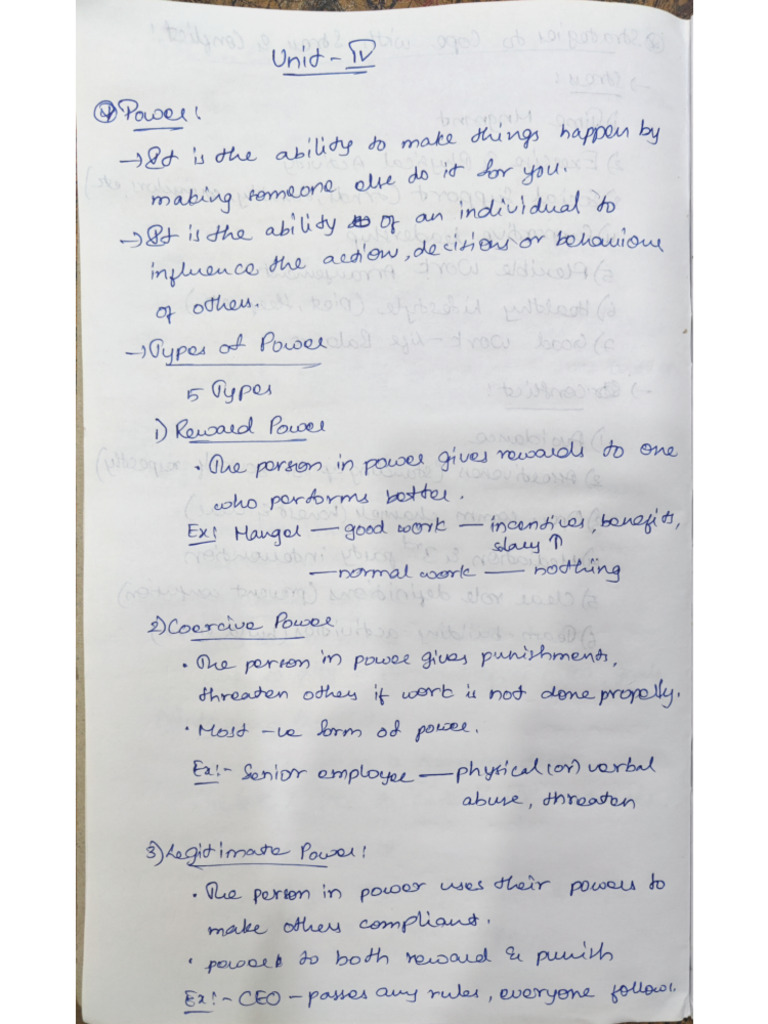 Unit - IV
④ Power:
→ It is the ability to make things happen by
making someone else do it for you.
→ It is the ability of an individual to
influence the action, decisions or behaviour
of others.
→ Types of Power
5 Types
1) Reward Power
• The person in power gives rewards to one
who performs better.
Ex: Mangel — good work — incentives, benefits,
slary ↑
— normal work — nothing
2) Coercive Power
• The person in power gives punishments,
threaten others if work is not done properly.
• Most -ve form of power.
Ex:- Senior employee — physical (or) verbal
abuse, threaten
3) Legitimate Power:
• The person in power uses their powers to
make others compliant.
• power to both reward & punish
Ex:- CEO - passes any rules, everyone follows.